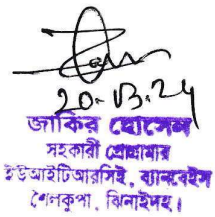 20.03.24
জাকির হোসেন
সহকারী প্রোগ্রামার
ইউআইটিআরসিই, ব্যানবেইস
শৈলকুপা, ঝিনাইদহ।